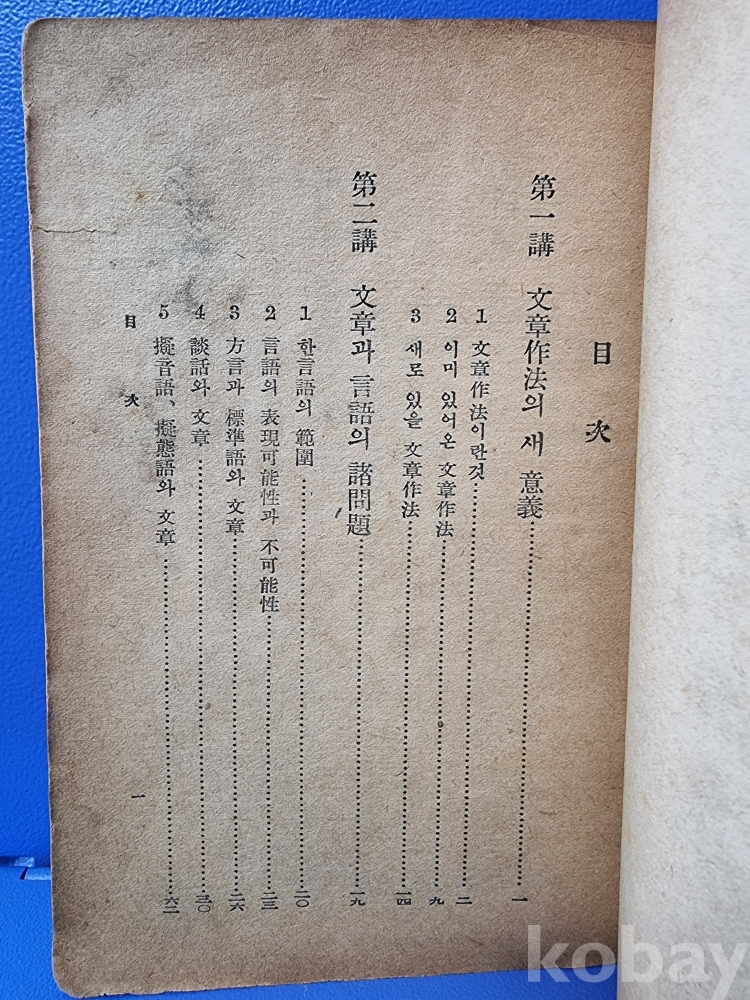 目次
第一講 文章作法의 새 意義 一
1 文章作法이란것 二
2 이미 있어온 文章作法 九
3 새로 있을 文章作法 一四
第二講 文章과 言語의 諸問題 一九
1 한言語의 範圍 二〇
2 言語의 表現可能性과 不可能性 二三
3 方言과 標準語와 文章 二六
4 談話와 文章 三〇
5 擬音語、擬態語와 文章 六二
目次 一
kobay